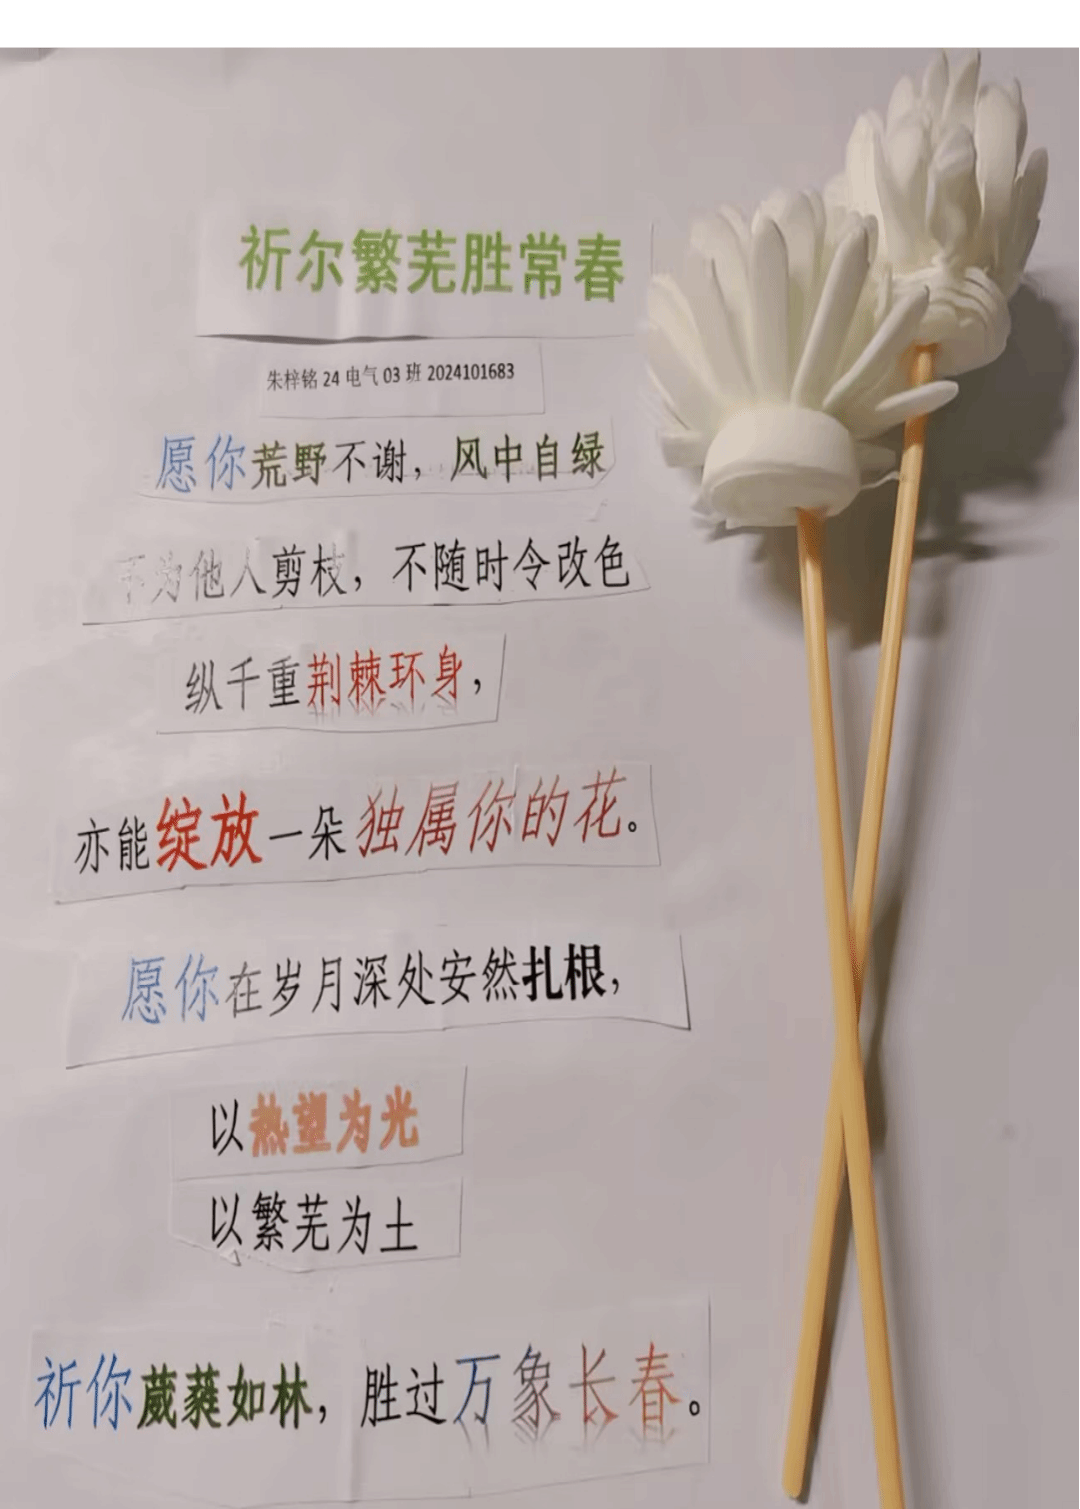 祈尔繁芜胜常春
朱梓铭 24 电气 03 班 2024101683
愿你荒野不谢，风中自绿
不为他人剪枝，不随时令改色
纵千重荆棘环身，
亦能绽放一朵独属你的花。
愿你在岁月深处安然扎根，
以热望为光
以繁芜为土
祈你葳蕤如林，胜过万象长春。